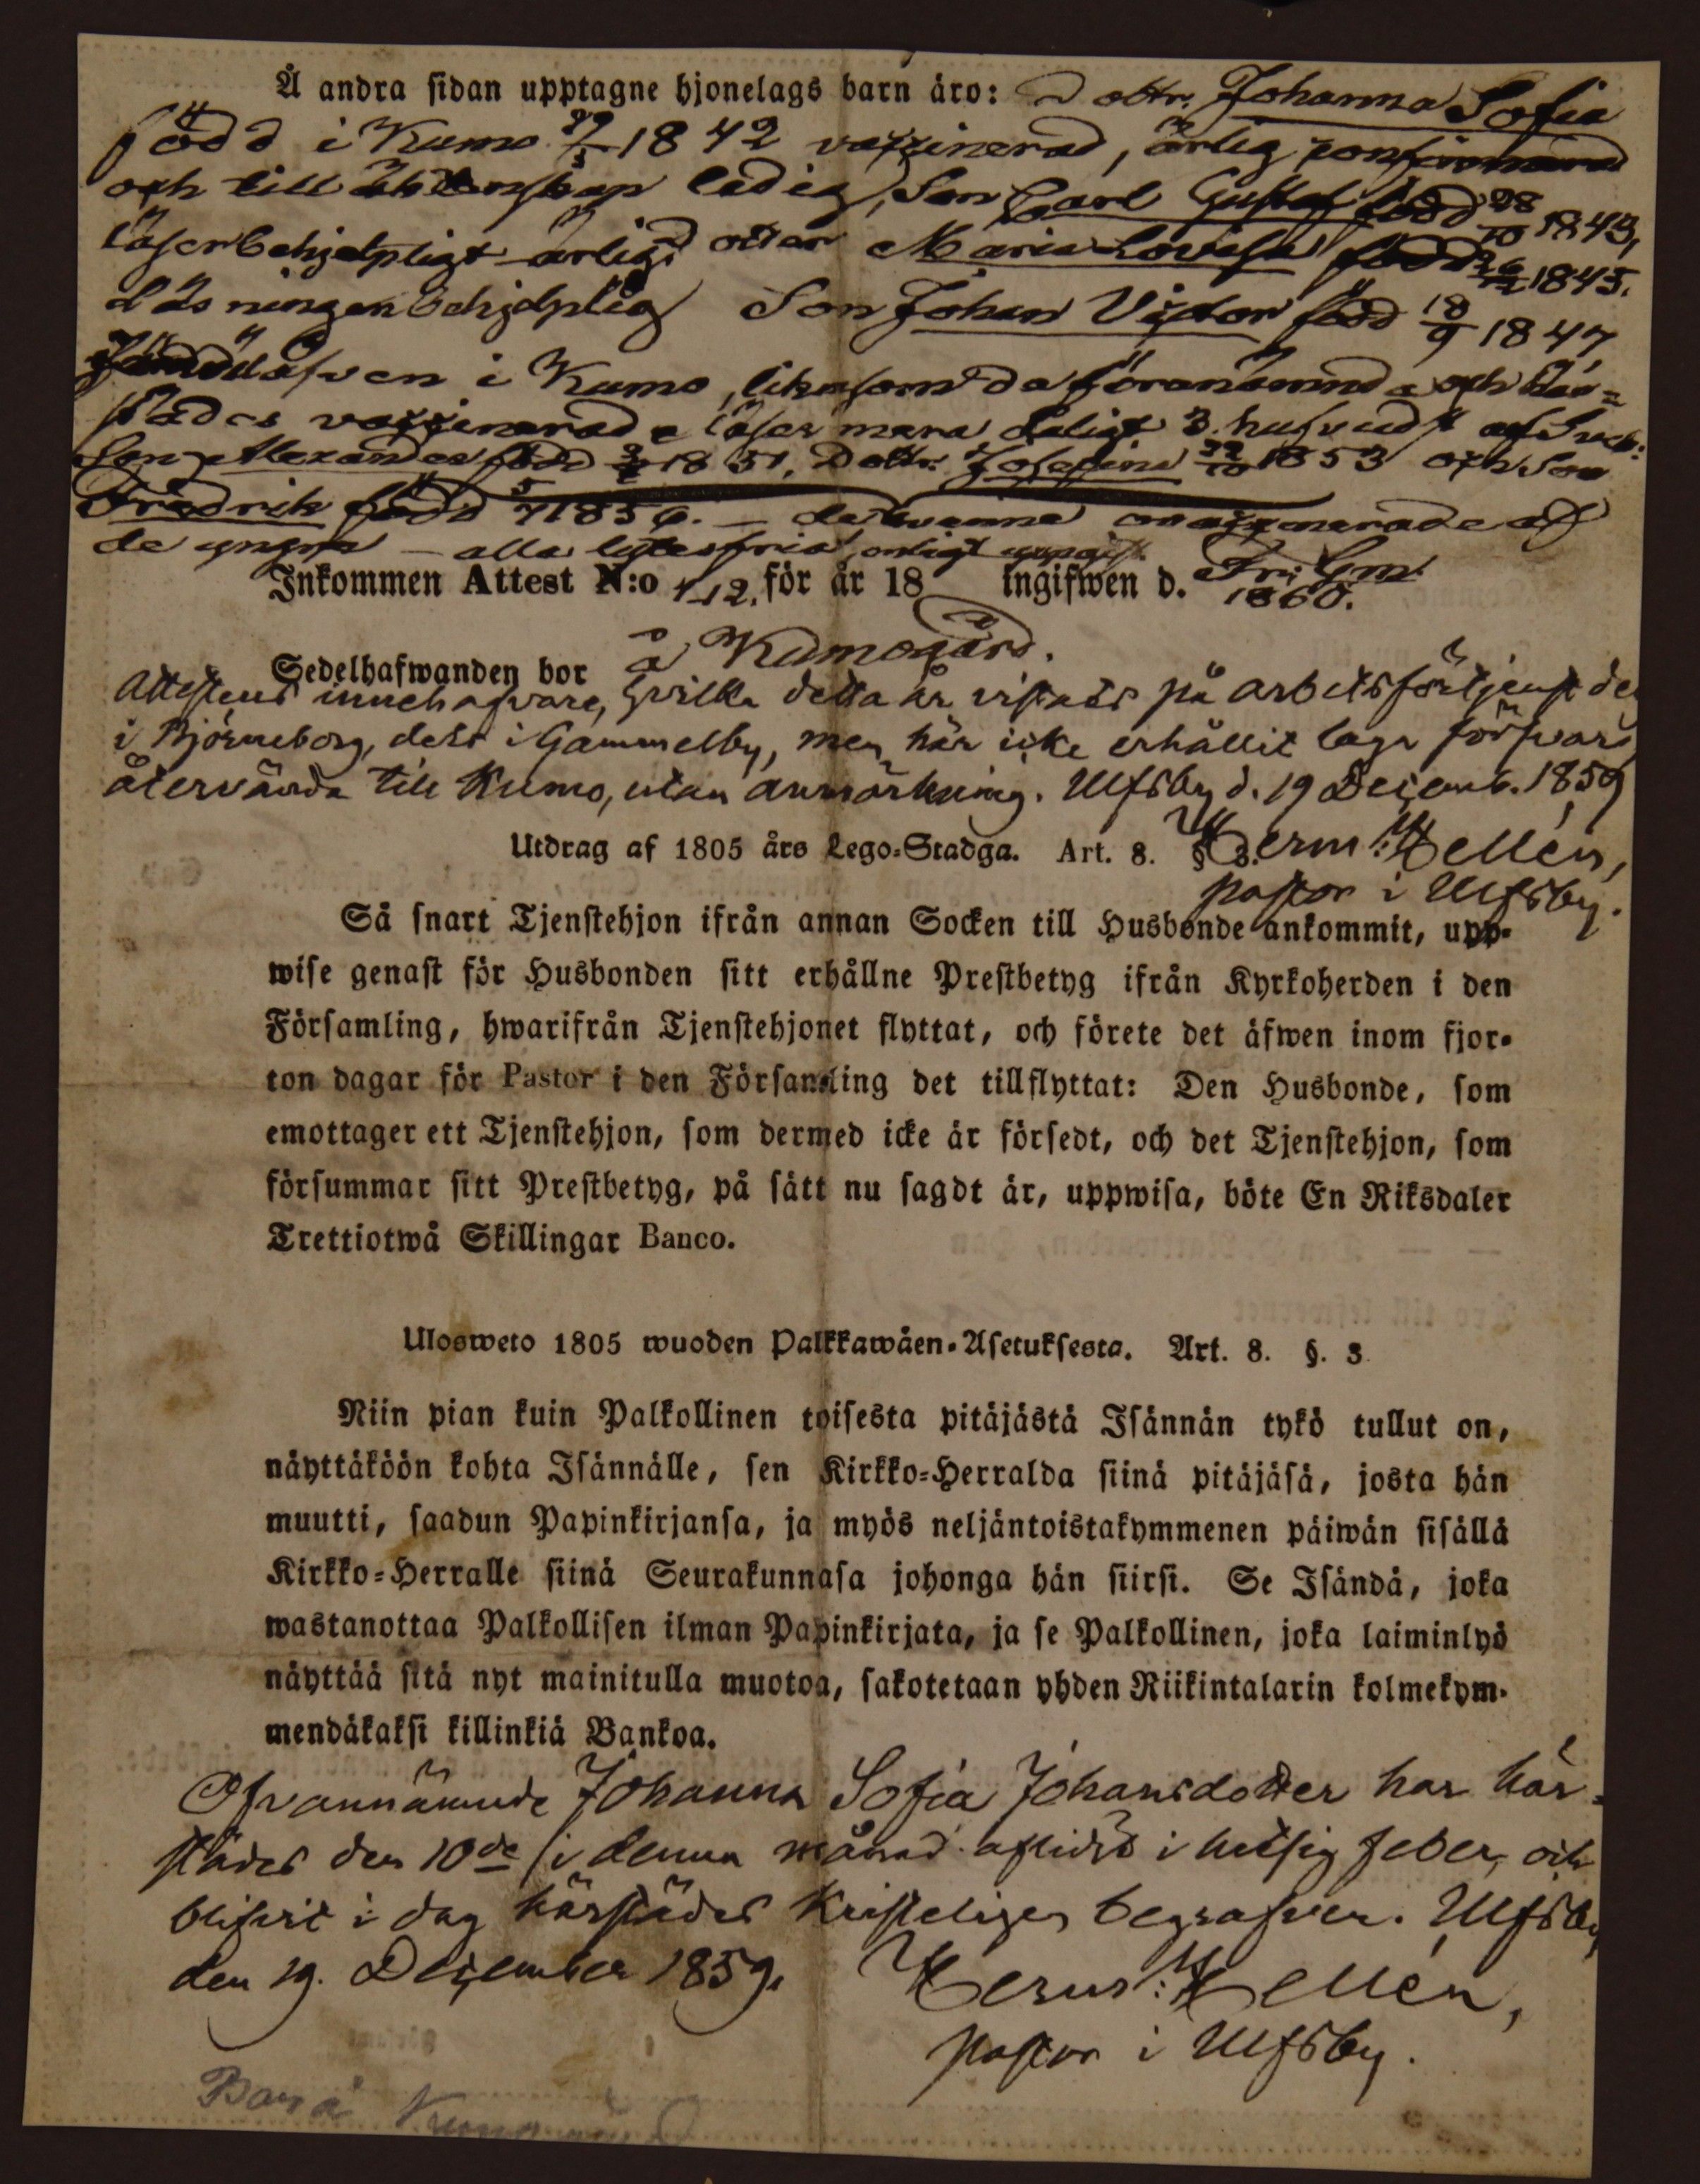 Å andra sidan upptagne hjonelags barn äro: Dottr. Johanna Sofia
född i Kumo 1842 vaxxinerad, ärlig, confirmerad
och till äktenskap ledig, Son Carl Gustaf född 28/10 1843,
läser behjelpligt ärlig, Dotter Maria Lovisa född 1845.
läsningen behjelplig Son Johan Victor född 18/9 1847
äfven i Kumo, liksom de förenämnde och här=
städes vaxxinerade läser mera dåligt 3 hufvudst. af Svebi:
Son Alexander född 1851, Dottr. Josefina 1853 och Son
Fredrik född 5/7 1856. — ovaxxinerade af
de yngre — alla lytesfria, enligt uppgift.
Inkommen Attest N:o 112. för år 18 ingifwen d.
1860.
Sedelhafwanden bor å Kumogård.
Attestens innehafvare, hvilka detta år vistats på arbetsförtjenst de
i Björneborg, dels i Gammelby, men här icke erhållit laga försvar,
återvända till Kumo, utan anmärkning. Ulfsby d. 19 Decemb. 1859
Utdrag af 1805 års Lego-Stadga. Art. 8. § 3. Herm: Hellén,
pastor i Ulfsby.
Så snart Tjenstehjon ifrån annan Socken till Husbonde ankommit, upp-
wise genast för Husbonden sitt erhållne Prestbetyg ifrån Kyrkoherden i den
Församling, hwarifrån Tjenstehjonet flyttat, och förete det äfwen inom fjor-
ton dagar för Pastor i den Församling det tillflyttat: Den Husbonde, som
emottager ett Tjenstehjon, som dermed icke är försedt, och det Tjenstehjon, som
försummar sitt Prestbetyg, på sätt nu sagdt är, uppwisa, böte En Riksdaler
Trettiotwå Skillingar Banco.
Ulosweto 1805 wuoden Palkkawäen-Asetuksesta. Art. 8. §. 3
Niin pian kuin Palkollinen toisesta pitäjästä Isännän tykö tullut on,
näyttäköön kohta Isännälle, sen Kirkko-Herralda siinä pitäjäsä, josta hän
muutti, saadun Papinkirjansa, ja myös neljäntoistakymmenen päiwän sisällä
Kirkko-Herralle siinä Seurakunnasa johonga hän siirsi. Se Isändä, joka
wastanottaa Palkollisen ilman Papinkirjata, ja se Palkollinen, joka laiminlyö
näyttää sitä nyt mainitulla muotoa, sakotetaan yhden Riikintalarin kolmekym-
mendäkaksi killinkiä Bankoa.
Ofvannämnde Johanna Sofia Johansdotter har här=
städes den 10de i denna månad aflidit i hetsig feber, och
blifvit i dag härstädes kristeligen begrafven. Ulfsby
den 19. December 1859.
Herm: Hellén,
pastor i Ulfsby.